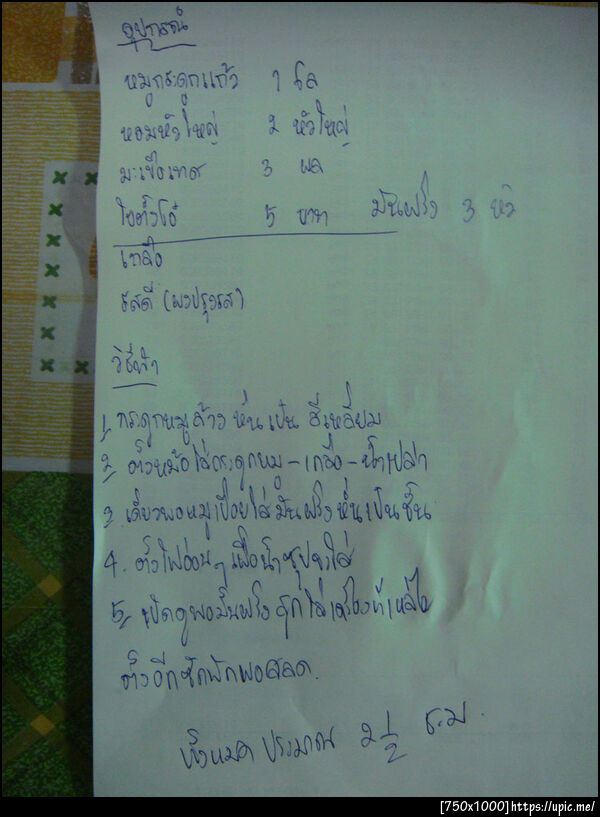 อุปกรณ์
หมูกระดูกแก้ว 1 โล
หอมหัวใหญ่ 2 หัวใหญ่
มะเขือเทศ 3 ผล
ใบตั้งโอ๋ 5 บาท มันฝรั่ง 3 หัว
เกลือ
รสดี (ผงปรุงรส)
วิธีทำ
1. กระดูกหมูล้าง หั่นเป็น สี่เหลี่ยม
2. ตั้งหม้อใส่กระดูกหมู - เกลือ - น้ำเปล่า
3. เคี่ยวพอหมูเปื่อยใส่มันฝรั่งหั่นเป็นชิ้น
4. ตั้งไฟอ่อนๆ เพื่อน้ำซุปจะใส
5. เปิดดูพอมันฝรั่งสุก ใส่เครื่องที่เหลือ
ตั้งอีกซักพักพอสลด.
ทั้งหมด ประมาณ 2 1/2 ช.ม.
[750x1000] https://upic.me/